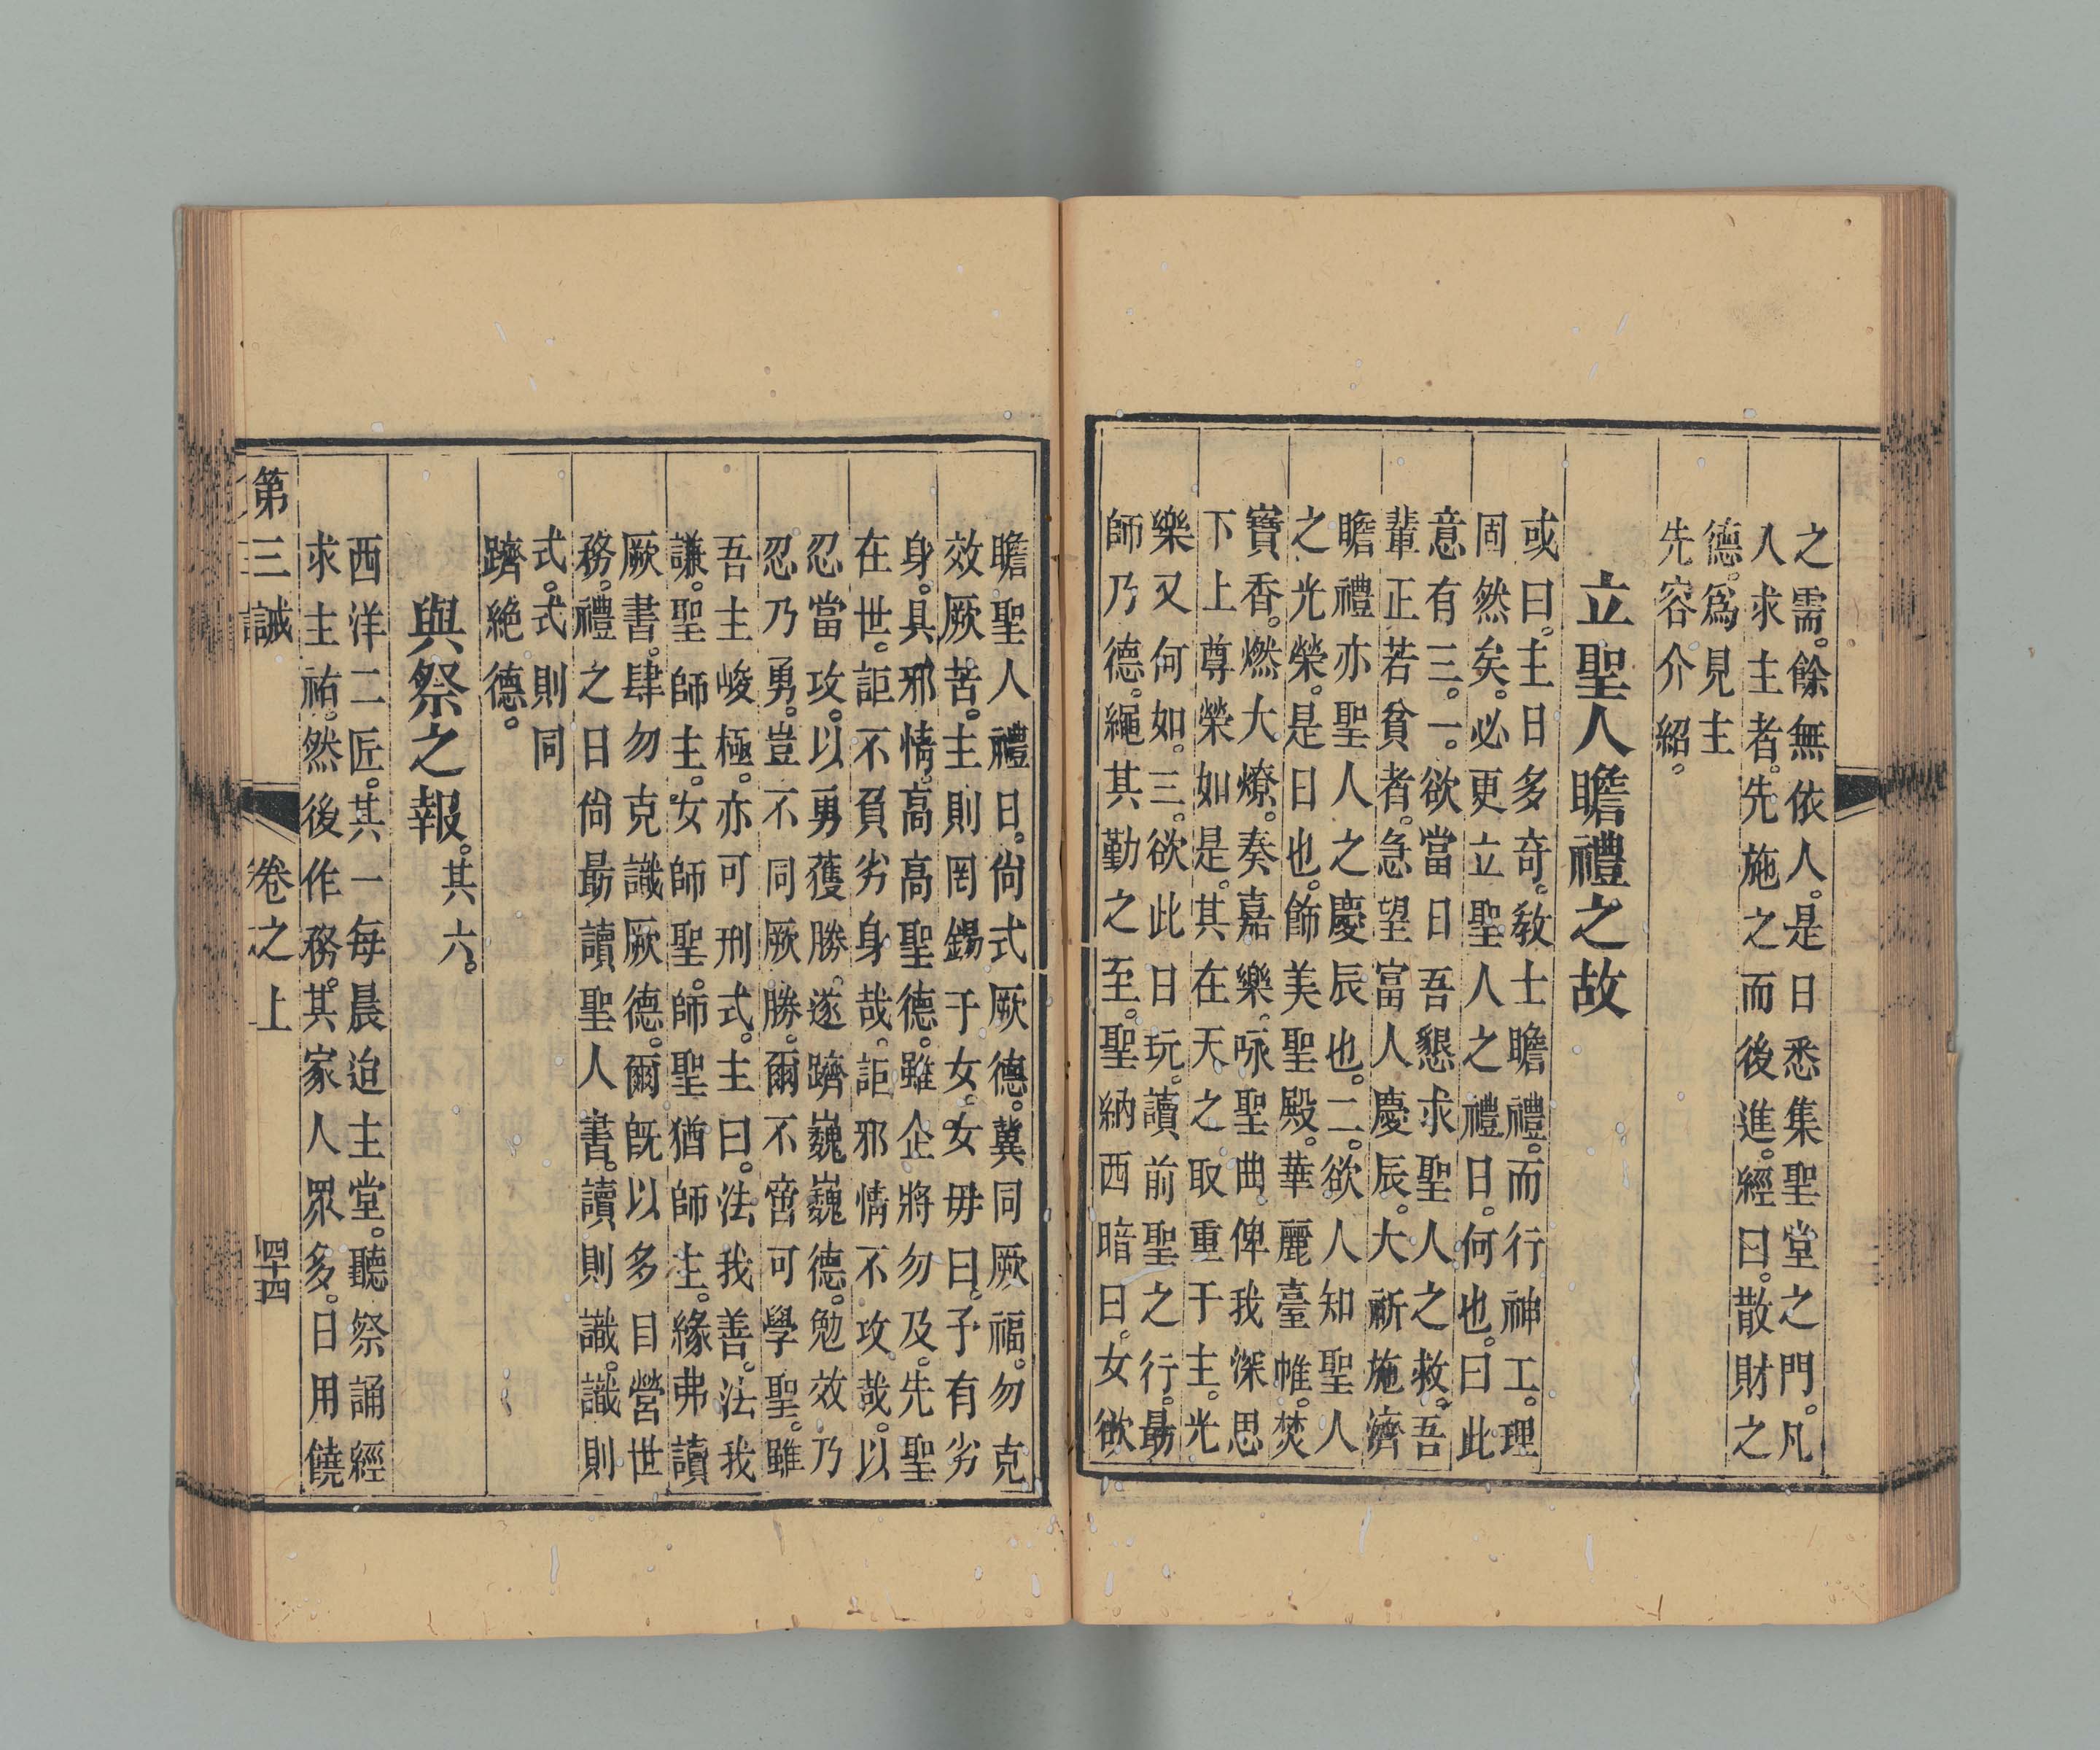 之需。餘無依人。是日悉集聖堂之門。凡
人求主者。先施之而後進。經曰。散財之
德。爲見主
先容介紹。
立聖人瞻禮之故
或曰。主日多奇。敎士瞻禮。而行神工。理
固然矣。必更立聖人之禮日。何也。曰此
意有三。一。欲當日吾懇求聖人之救。吾
輩正若貧者。急望富人慶辰。大祈施濟
瞻禮亦聖人之慶辰也。二。欲人知聖人
之光榮。是日也。飾美聖殿。華麗臺帷。焚
寶香。燃大燎。奏嘉樂。咏聖曲。俾我深思
下上尊榮如是。其在天之取重于主。光
樂又何如。三。欲此日玩讀前聖之行。最
師乃德。繩其勤之至。聖納西暗曰。女欲
瞻聖人禮日。尙式厥德。冀同厥福。勿克
效厥苦。主則罔錫于女。女毋曰。予有劣
身。具邪情。高高聖德。雖企將勿及。先聖
在世。詎不負劣身哉。詎邪情不攻哉。以
忍當攻。以勇獲勝。遂躋巍巍德。勉效乃
忍乃勇。豈不同厥勝。爾不啻可學聖。雖
吾主峻極。亦可刑式。主曰。法我善。法我
謙。聖師主。女師聖。師聖猶師主。緣弗讀
厥書。肆勿克識厥德。爾旣以多目營世
務。禮之日尙最讀聖人書。讀則識。識則
式。式則同
躋絶德。
與祭之報。其六。
西洋二匠。其一每晨迨主堂。聽祭誦經
求主祐。然後作務。其家人眾多。日用饒
第三誡 卷之上 四十四